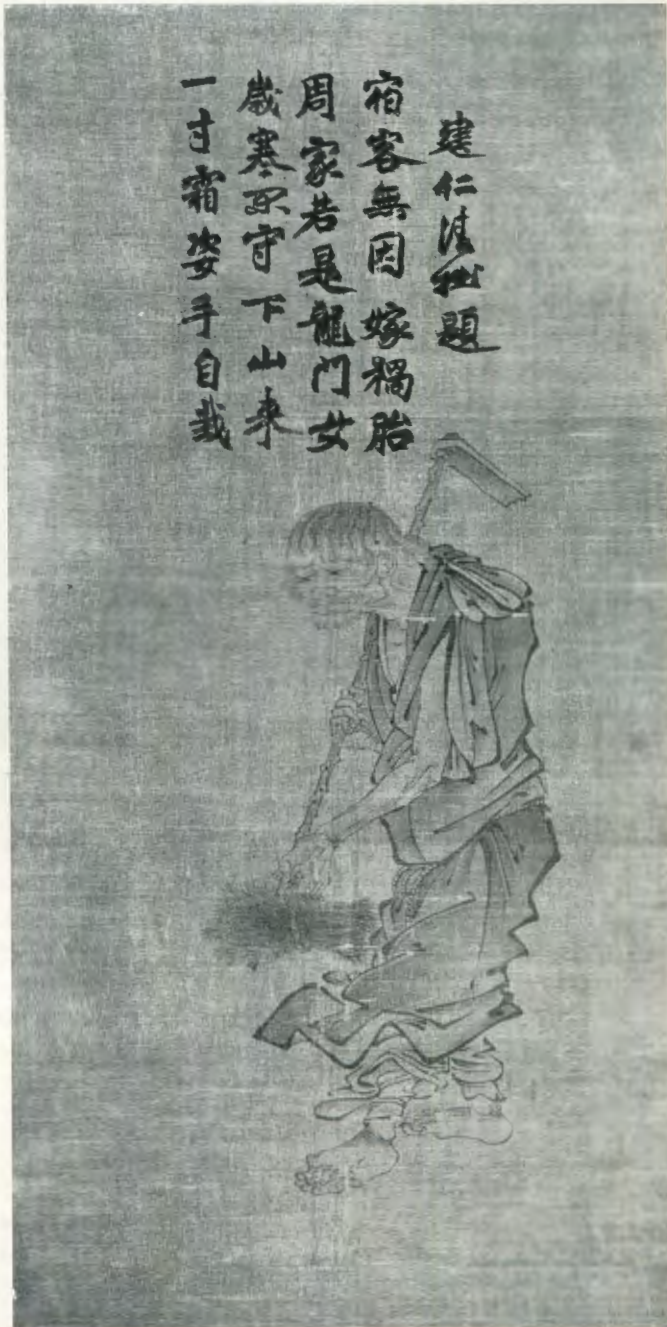 一寸霜姿手自栽
歲寒不守下山来
周家若是龍门女
宿客無因嫁禍胎
建仁清拙題